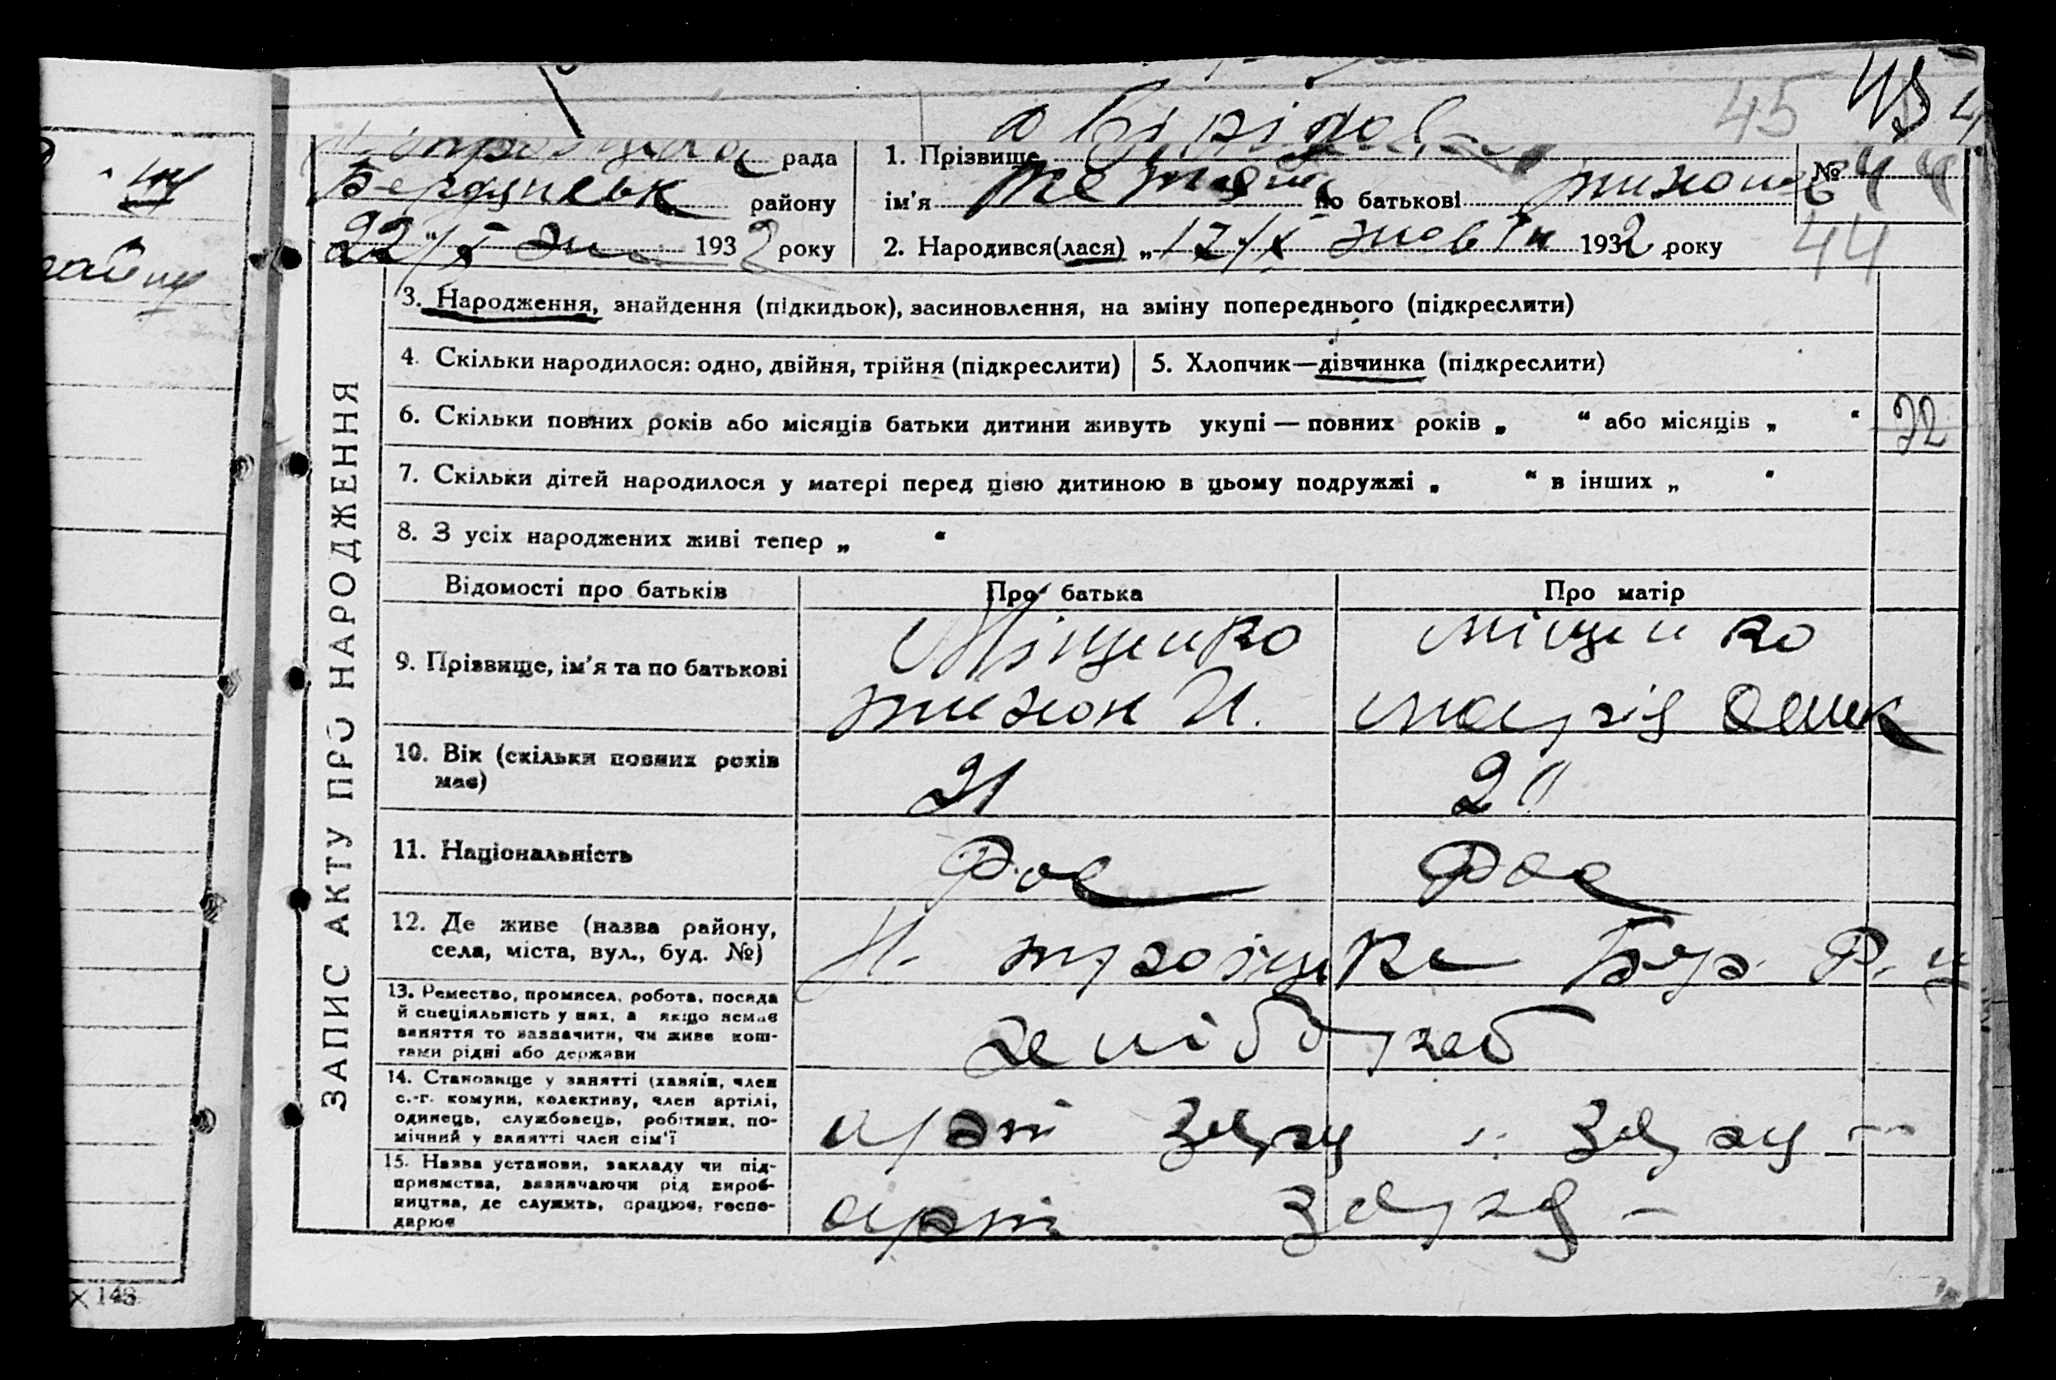 45
рада
1. Прізвище
Бердянськ району
ім'я по батькові
№ 44
22/X 1932 року
2. Народився(лася) „17/X жовтн 1932 року
44
3. Народження, знайдення (підкидьок), засиновлення, на зміну попереднього (підкреслити)
4. Скільки народилося: одно, двійня, трійня (підкреслити)
5. Хлопчик—дівчинка (підкреслити)
6. Скільки повних років або місяців батьки дитини живуть укупі — повних років „ “ або місяців „ “
7. Скільки дітей народилося у матері перед цією дитиною в цьому подружжі „ “ в інших „ “
8. З усіх народжених живі тепер „ “
ЗАПИС АКТУ ПРО НАРОДЖЕННЯ
Відомості про батьків
Про батька
Про матір
9. Прізвище, ім'я та по батькові
Міщенко
тихон И.
міщенко
марія
10. Вік (скільки повних років
має)
21
20
11. Національність
Рос
Рос
12. Де живе (назва району,
села, міста, вул., буд. №)
Н. троіцке Бер. Р.
13. Ремество, промисел, робота, посада
й спеціяльність у них, а якщо немає
заняття то зазначити, чи живе кош-
тами рідні або держави
хлібороб
14. Становище у занятті (хазяїн, член
с.-г. комуни, колективу, член артілі,
одинець, службовець, робітник, по-
мічний у занятті член сім'ї
арт
15. Назва установи, закладу чи під-
приємства, зазначаючи рід вироб-
ництва, де служить, працює, госпо-
дарює
арт
148